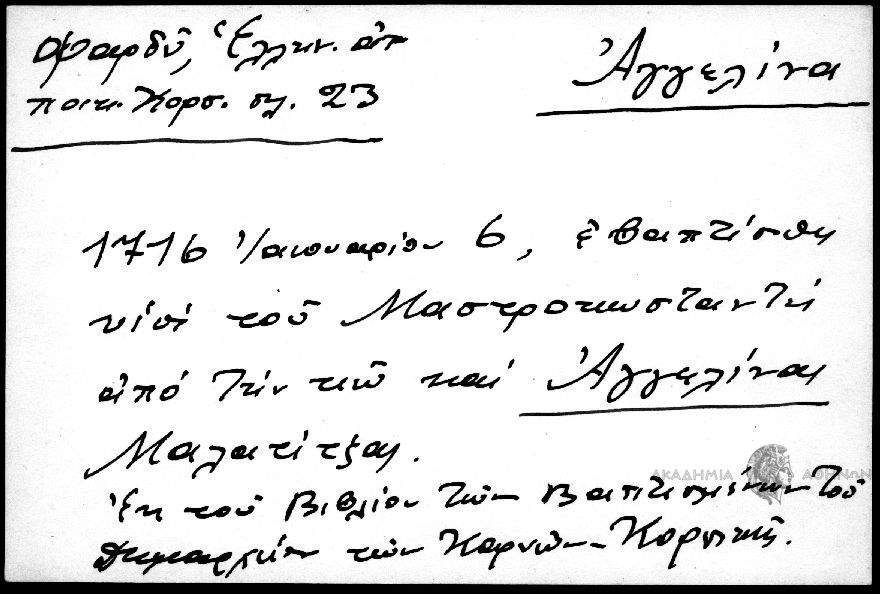 Φαρδῦ, Ἑλλην. ἀπ
ποικ. Κορσ. σελ. 23
Ἀγγελίνα
1716 Ἰαουαρίου 6, ἐβαπτίσθη
υἱὸς τοῦ Μαστροκωσταντῆ
ἀπό Τήν τιῶ καί Ἀγγελίνας
Μαλατίτζας.
Ἐκ τοῦ Βιβλίου τῶν Βαπτισμένων τοῦ
Δημαρχείου τῶν Καρυῶν - Κορσικῆς.
ΑΚΑΔΗΜΙΑ ΑΘΗΝΩΝ